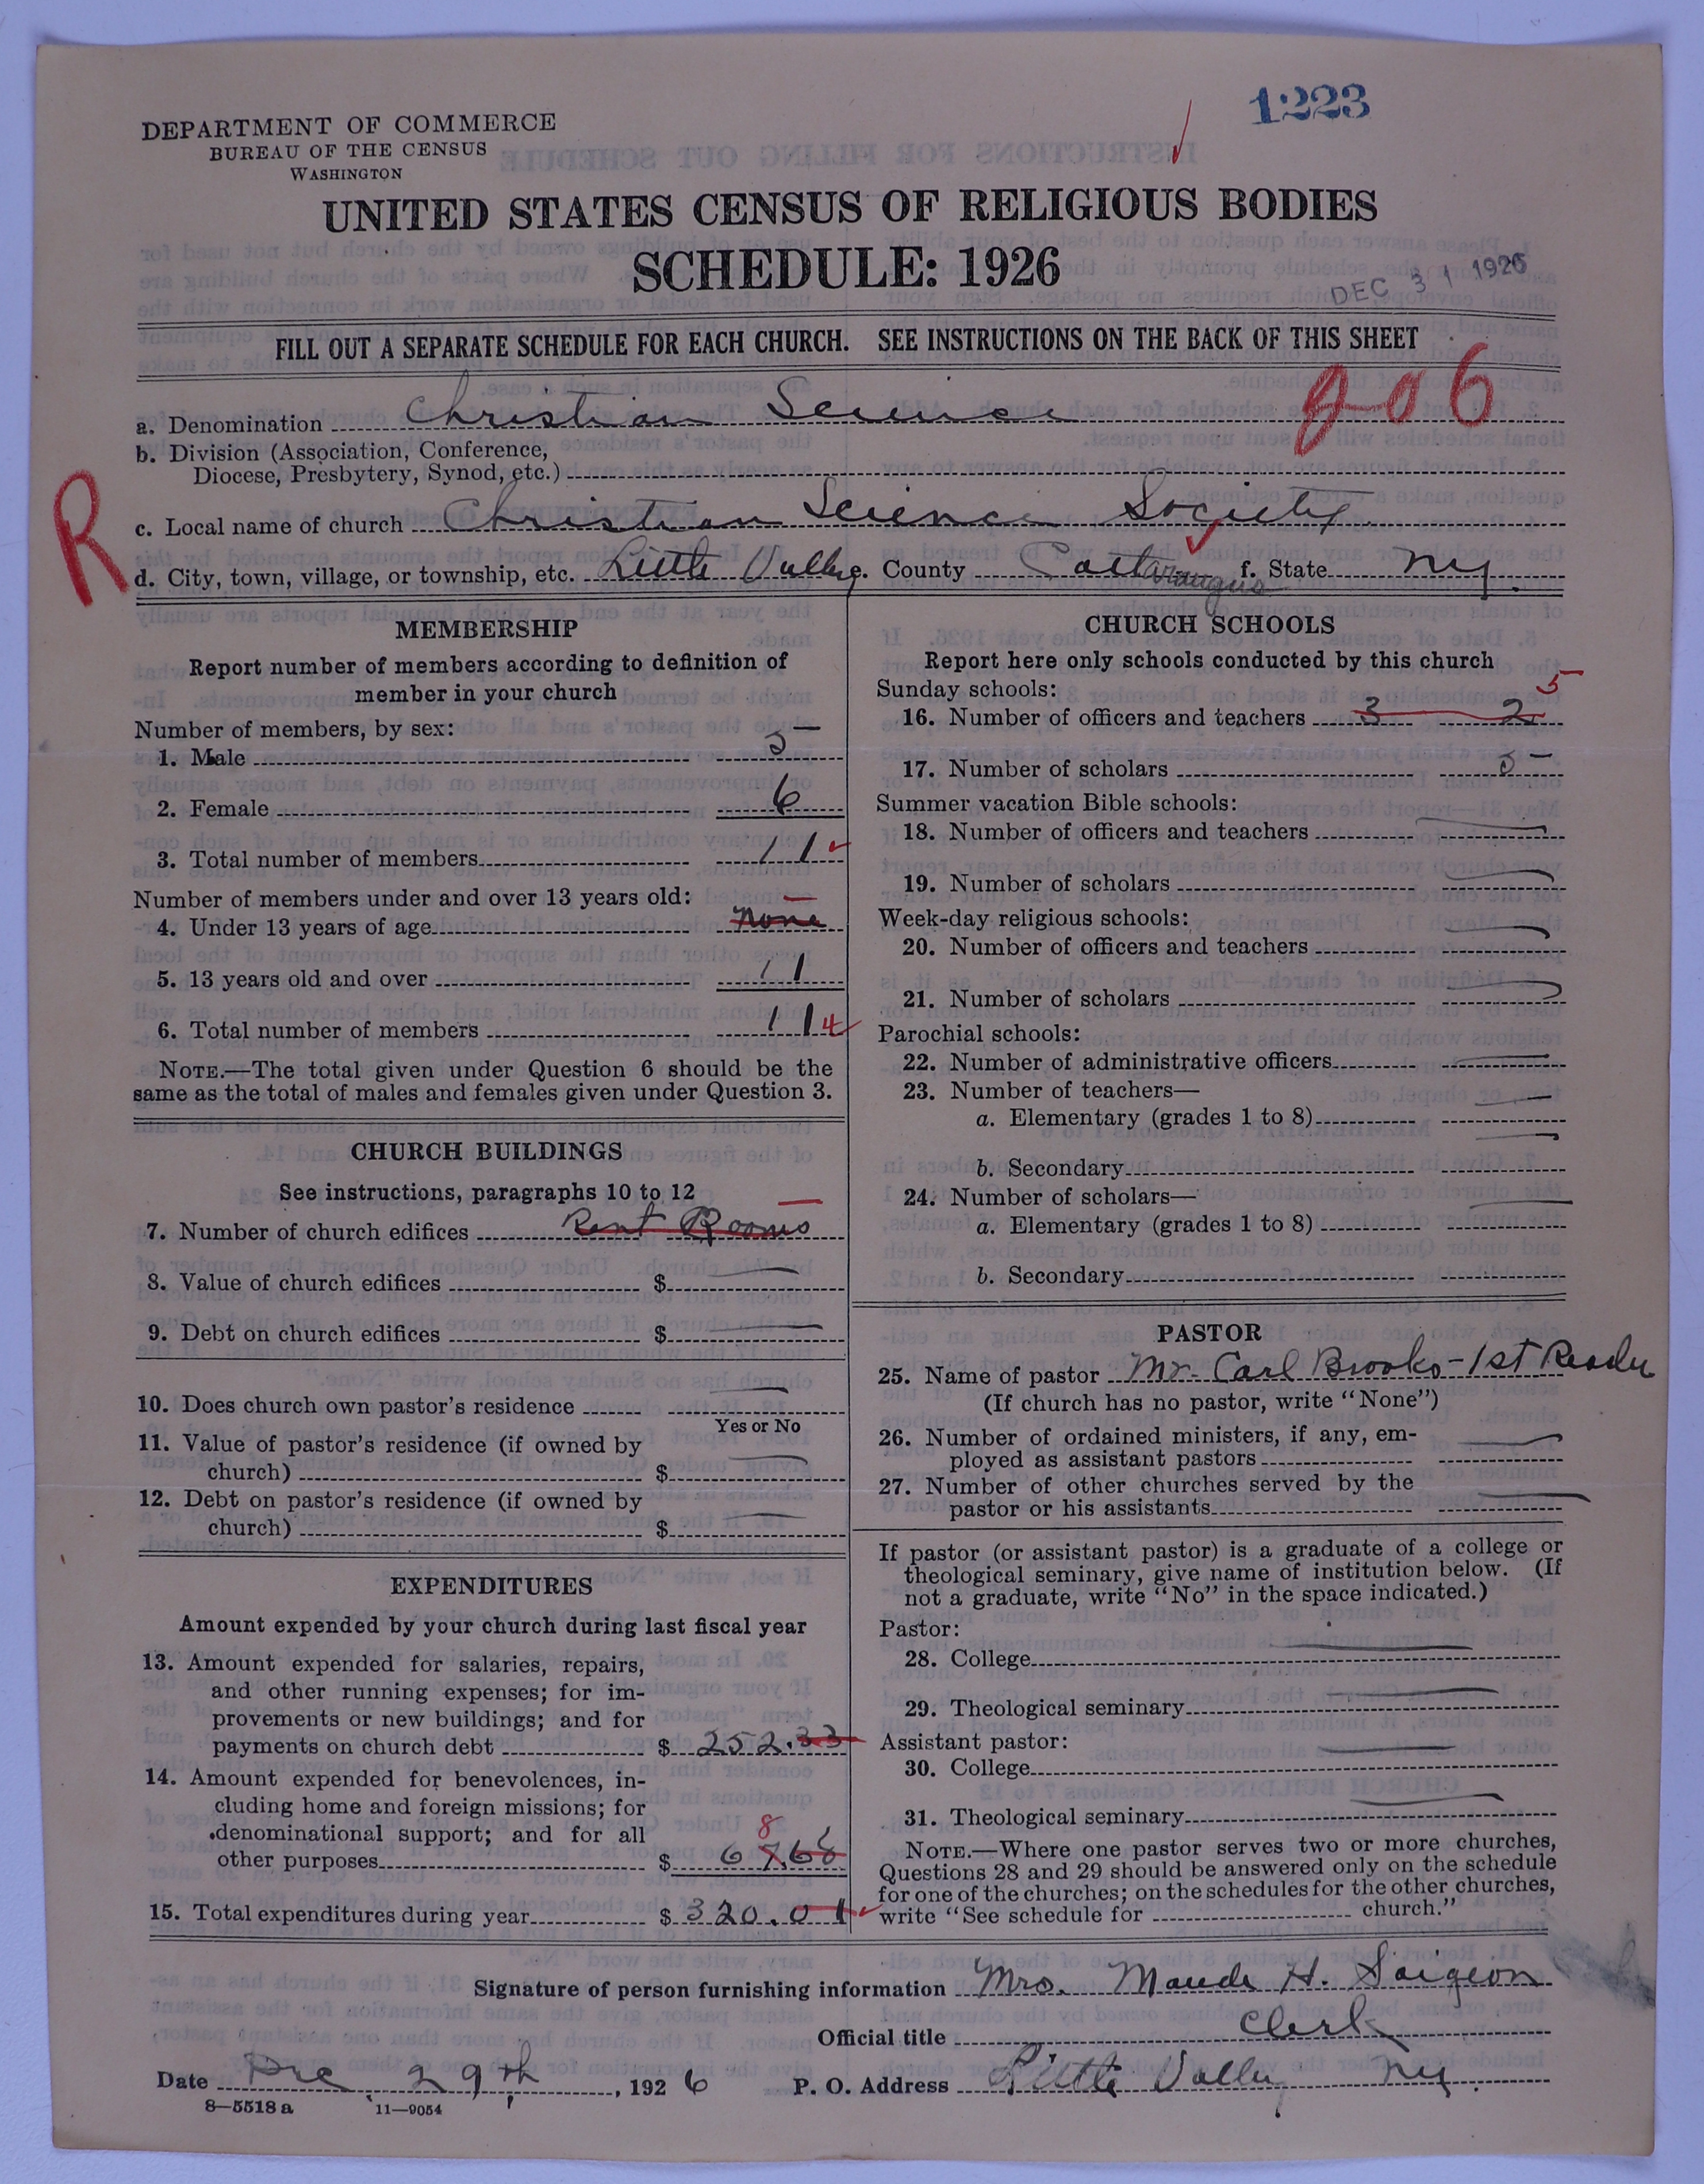 1223
DEPARTMENT OF COMMERCE
BUREAU OF THE CENSUS
WASHINGTON
UNITED STATES CENSUS OF RELIGIOUS BODIES
SCHEDULE: 1926
DEC 31 1926
FILL OUT A SEPARATE SCHEDULE FOR EACH CHURCH. SEE INSTRUCTIONS ON THE BACK OF THIS SHEET
906
a. Denomination Christian Science
b. Division (Association, Conference,
Diocese, Presbytery, Synod, etc.)
R
c. Local name of church Christian Science Society
d. City, town, village, or township, etc. Little Valley e. County Cattaraugus f. State N.Y.
MEMBERSHIP
Report number of members according to definition of
member in your church
Number of members, by sex:
1. Male 5
2. Female 6
3. Total number of members 11
Number of members under and over 13 years old:
4. Under 13 years of age none
5. 13 years old and over 11
6. Total number of members 11 4
NOTE.—The total given under Question 6 should be the
same as the total of males and females given under Question 3.
CHURCH BUILDINGS
See instructions, paragraphs 10 to 12
7. Number of church edifices Rent Rooms
8. Value of church edifices $
9. Debt on church edifices $
10. Does church own pastor's residence
Yes or No
11. Value of pastor's residence (if owned by
church) $
12. Debt on pastor's residence (if owned by
church) $
EXPENDITURES
Amount expended by your church during last fiscal year
13. Amount expended for salaries, repairs,
and other running expenses; for im-
provements or new buildings; and for
payments on church debt $ 252.33
14. Amount expended for benevolences, in-
cluding home and foreign missions; for
denominational support; and for all
8
other purposes $ 67.68
15. Total expenditures during year $ 320.01
CHURCH SCHOOLS
Report here only schools conducted by this church
Sunday schools:
5
16. Number of officers and teachers 3 2
17. Number of scholars 5
Summer vacation Bible schools:
18. Number of officers and teachers
19. Number of scholars
Week-day religious schools:
20. Number of officers and teachers
21. Number of scholars
Parochial schools:
22. Number of administrative officers
23. Number of teachers—
a. Elementary (grades 1 to 8)
b. Secondary
24. Number of scholars—
a. Elementary (grades 1 to 8)
b. Secondary
PASTOR
25. Name of pastor Mr. Carl Brooks - 1st Reader
(If church has no pastor, write "None")
26. Number of ordained ministers, if any, em-
ployed as assistant pastors
27. Number of other churches served by the
pastor or his assistants
If pastor (or assistant pastor) is a graduate of a college or
theological seminary, give name of institution below. (If
not a graduate, write "No" in the space indicated.)
Pastor:
28. College
29. Theological seminary
Assistant pastor:
30. College
31. Theological seminary
NOTE.—Where one pastor serves two or more churches,
Questions 28 and 29 should be answered only on the schedule
for one of the churches; on the schedules for the other churches,
write "See schedule for church."
Signature of person furnishing information Mrs. Maude H. Saigeon
Official title Clerk
Date Dec 29th, 1926 P. O. Address Little Valley N.Y.
8—5518 a 11—9054